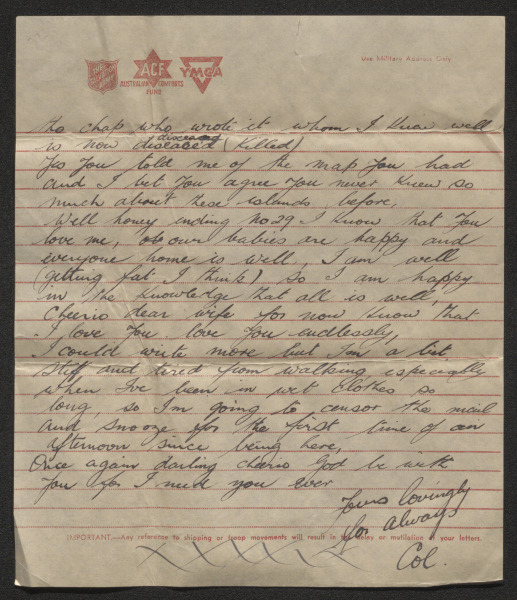 THE SALVATION ARMY
ACF
AUSTRALIAN COMFORTS FUND
YMCA
Use Military Address Only
the chap who wrote it whom I know well
deceased
is now diseased (Killed)
Yes you told me of the map you had
and I bet you agree you never knew so
much about these islands before,
Well honey ending No 29 I know that you
love me, our babies are happy and
everyone home is well, I am well
(getting fat I think) so I am happy
in the knowledge that all is well,
Cheerio dear wife for now know that
I love you love you endlessly,
I could write more but I'm a bit
stiff and tired from walking especially
when I've been in wet clothes so
long, so I'm going to censor the mail
and snooze for the first time of an
afternoon since being here,
Once again darling cheerio God be with
you for I need you ever
Yours lovingly
for always
Col.
IMPORTANT.—Any reference to shipping or troop movements will result in delay or mutilation of your letters.
XXXXX